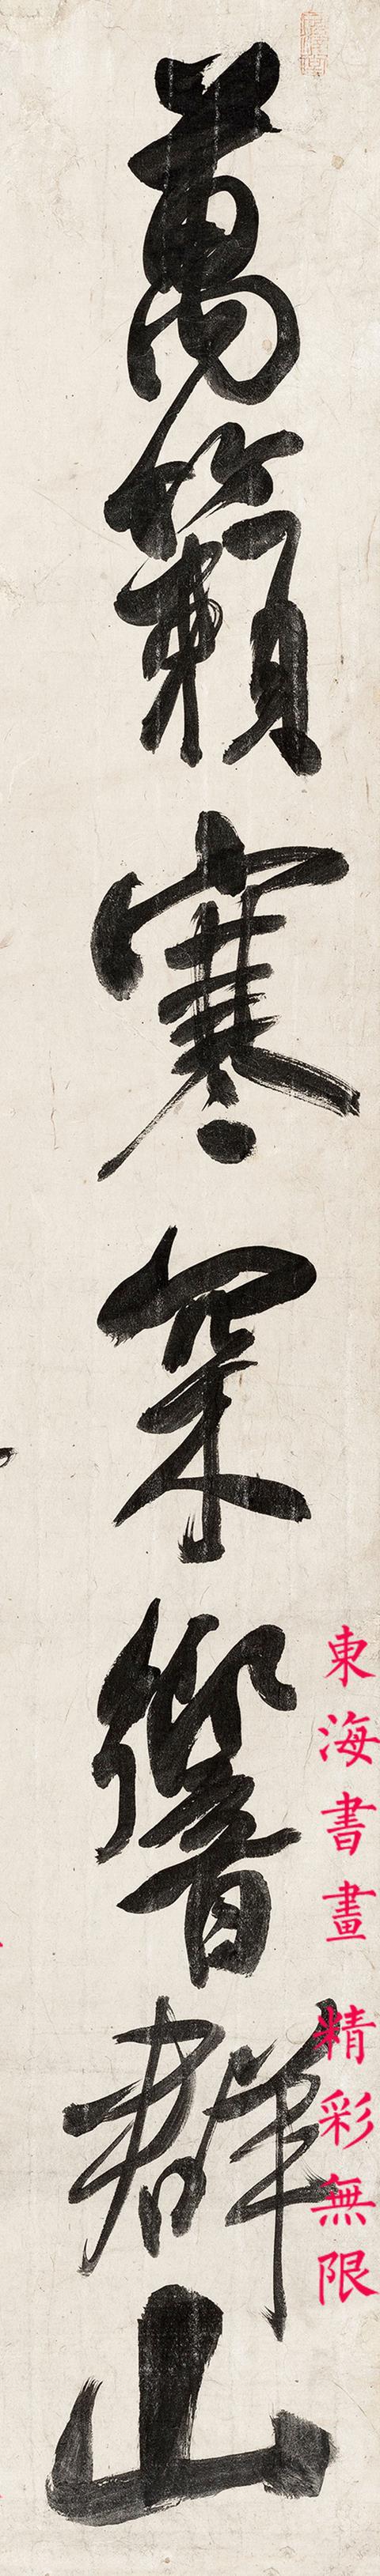 萬籟寒深響群山
東海書畫 精彩無限